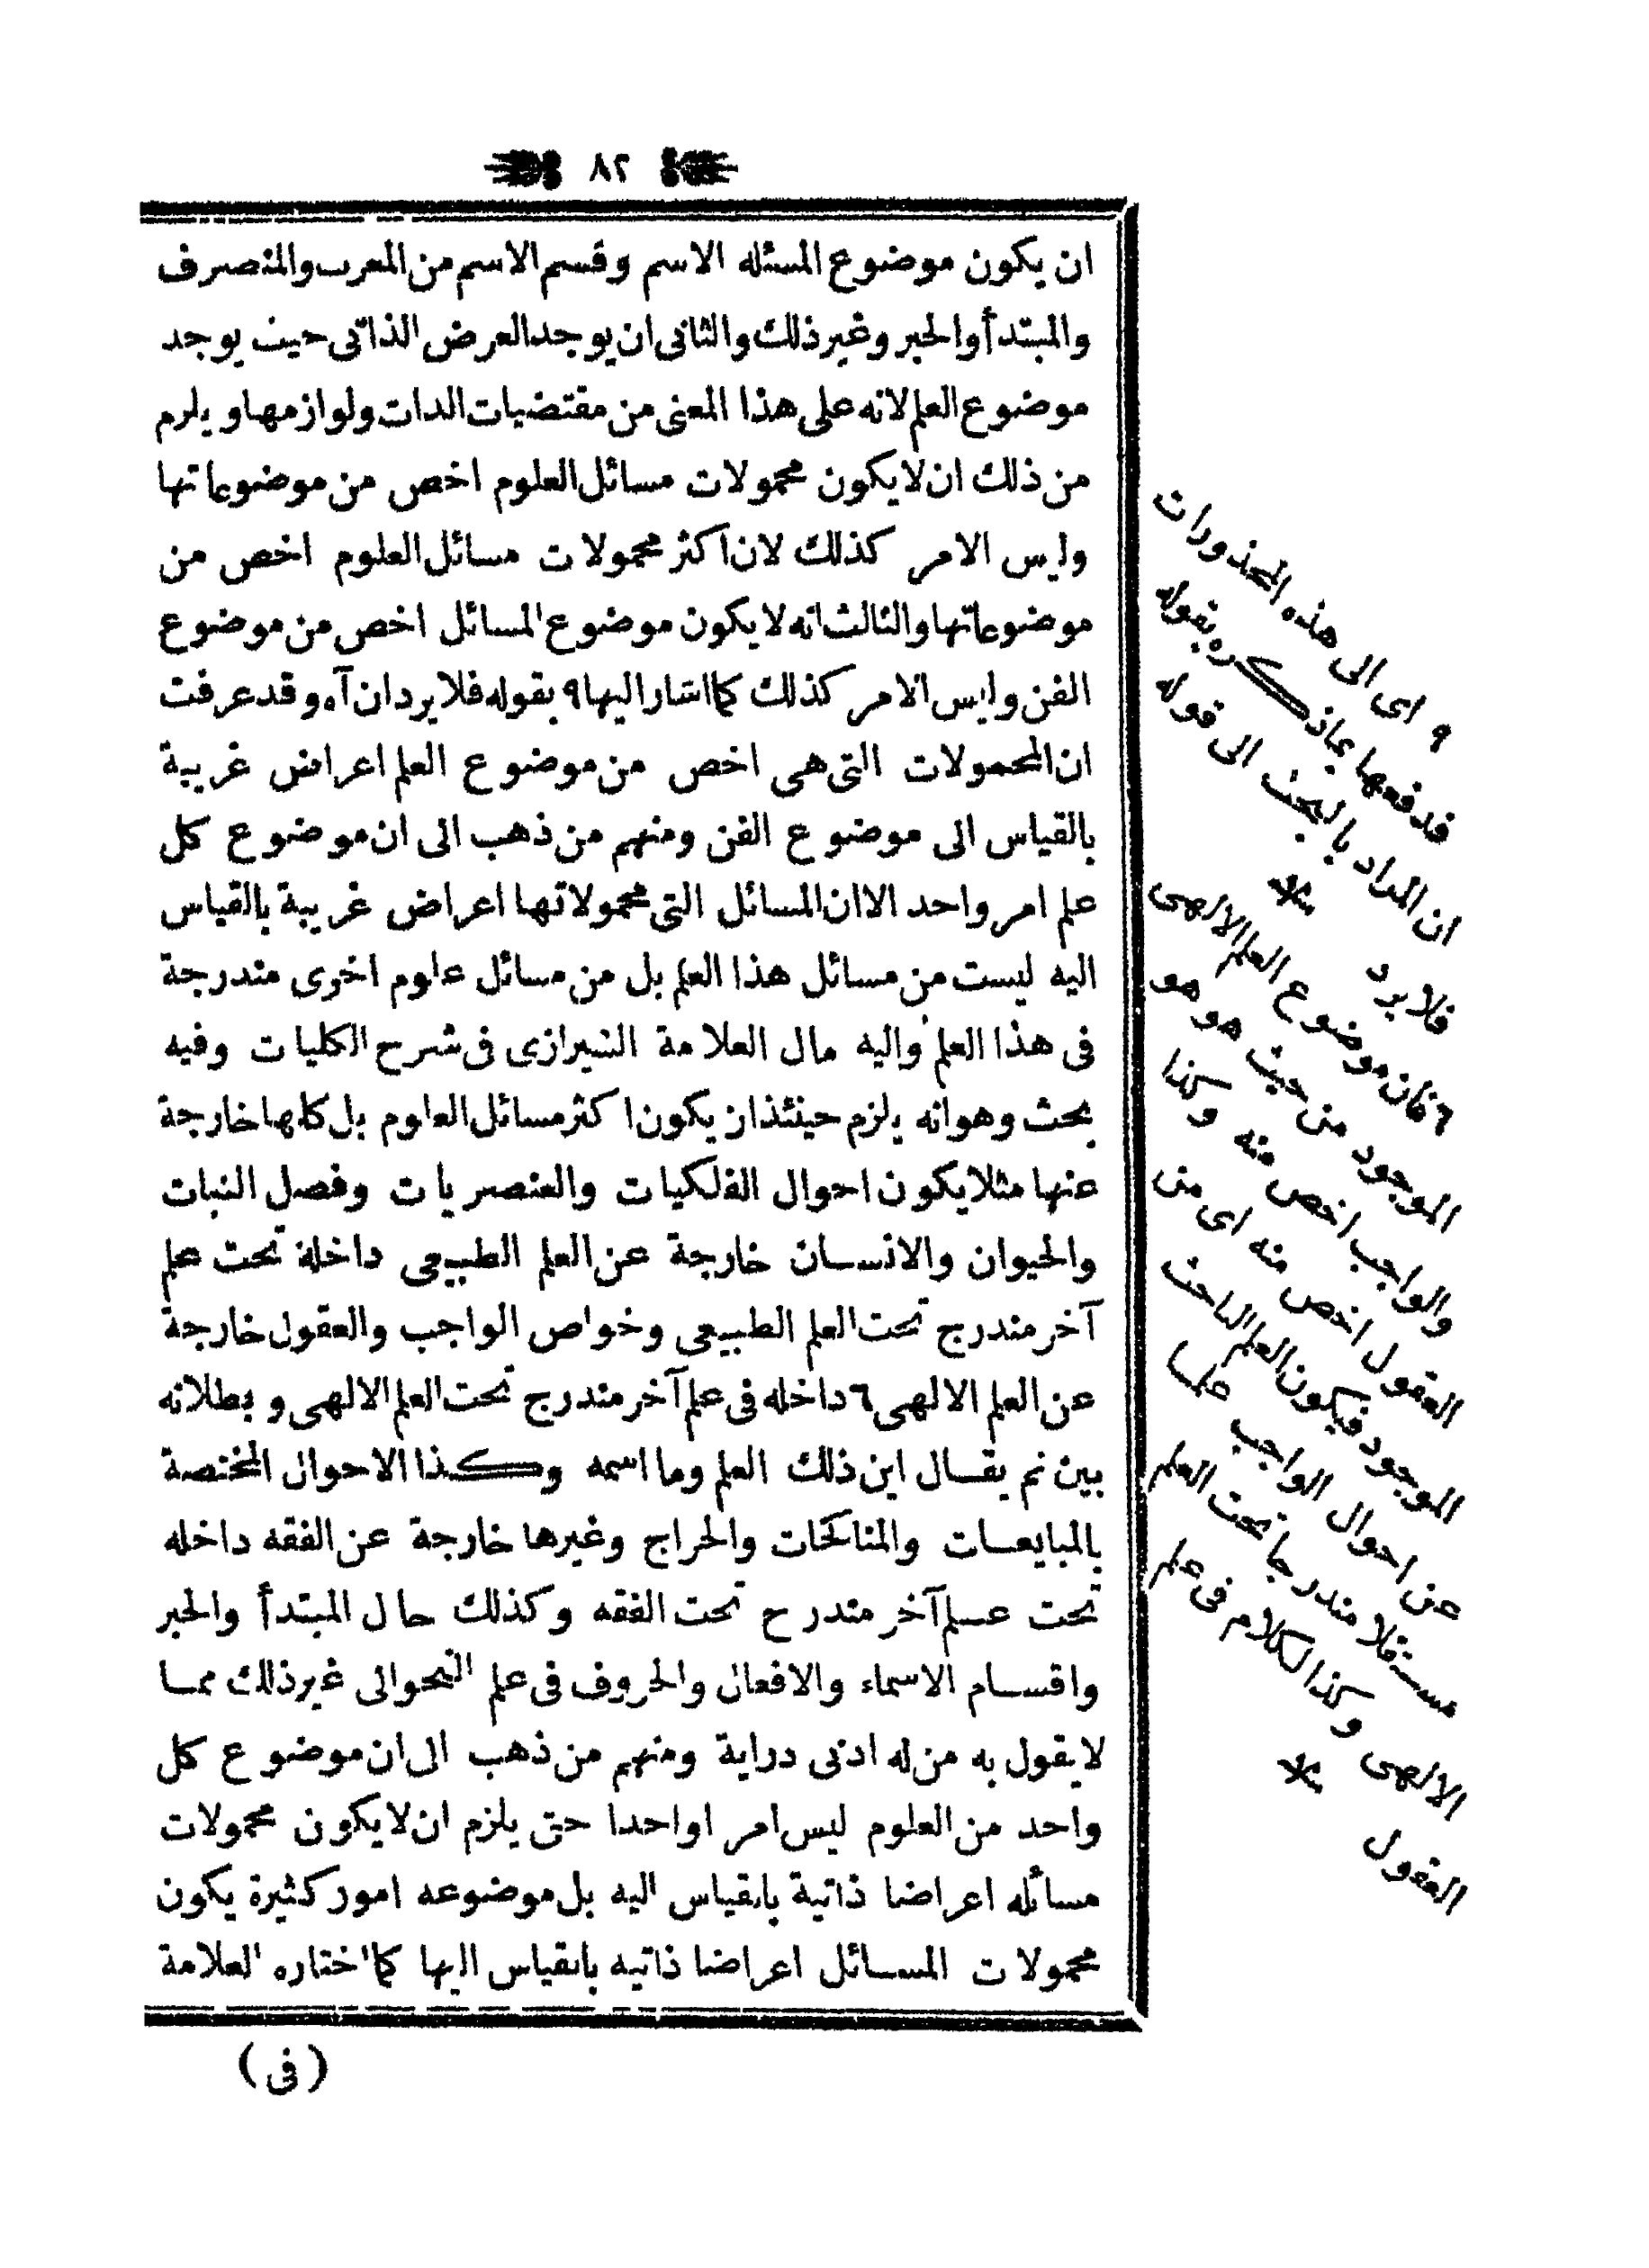 ٨٢
ان يكون موضوع المسئله الاسم وقسم الاسم من المعرب والمنصرف
والمبتدأ والخبر وغير ذلك والثانى ان يوجد العرض الذاتى حيث يوجد
موضوع العلم لانه على هذا المعنى من مقتضيات الذات ولوازمها ويلزم
من ذلك ان لا يكون محمولات مسائل العلوم اخص من موضوعاتها
وليس الامر كذلك لان اكثر محمولات مسائل العلوم اخص من
موضوعاتها والثالث انه لا يكون موضوع المسائل اخص من موضوع
الفن وليس الامر كذلك كما اشار اليها ٩ بقوله فلا يرد ان آه وقد عرفت
ان المحمولات التى هى اخص من موضوع العلم اعراض غريبة
بالقياس الى موضوع الفن ومنهم من ذهب الى ان موضوع كل
علم امر واحد الا ان المسائل التى محمولاتها اعراض غريبة بالقياس
اليه ليست من مسائل هذا العلم بل من مسائل علوم اخرى مندرجة
فى هذا العلم واليه مال العلامة الشيرازى فى شرح الكليات وفيه
بحث وهو انه يلزم حينئذ ان يكون اكثر مسائل العلوم بل كلها خارجة
عنها مثلا يكون احوال الفلكيات والعنصريات وفصل النبات
والحيوان والانسان خارجة عن العلم الطبيعى داخلة تحت علم
آخر مندرج تحت العلم الطبيعى وخواص الواجب والعقول خارجة
عن العلم الالهى ٦ داخله فى علم آخر مندرج تحت العلم الالهى وبطلانه
بين ثم يقال اين ذلك العلم وما اسمه وكذا الاحوال المختصة
بالمبايعات والمناكحات والخراج وغيرها خارجة عن الفقه داخله
تحت علم آخر مندرج تحت الفقه وكذلك حال المبتدأ والخبر
واقسام الاسماء والافعال والحروف فى علم النحو الى غير ذلك مما
لا يقول به من له ادنى دراية ومنهم من ذهب الى ان موضوع كل
واحد من العلوم ليس امرا واحدا حتى يلزم ان لا يكون محمولات
مسائله اعراضا ذاتية بالقياس اليه بل موضوعه امور كثيرة يكون
محمولات المسائل اعراضا ذاتيه بالقياس اليها كما اختاره العلامة
(فى)
٩ اى الى هذه المحذورات
فدفعها بما ذكره بقوله
ان المراد بالبحث الى قوله
فلا يرد
٦ فان موضوع العلم الالهى
الموجود من حيث هو هو
والواجب اخص منه وكذا
العقول اخص منه اى من
الموجود فيكون العلم الباحث
عن احوال الواجب علما
مستقلا مندرجا تحت العلم
الالهى وكذا الكلام فى علم
العقول